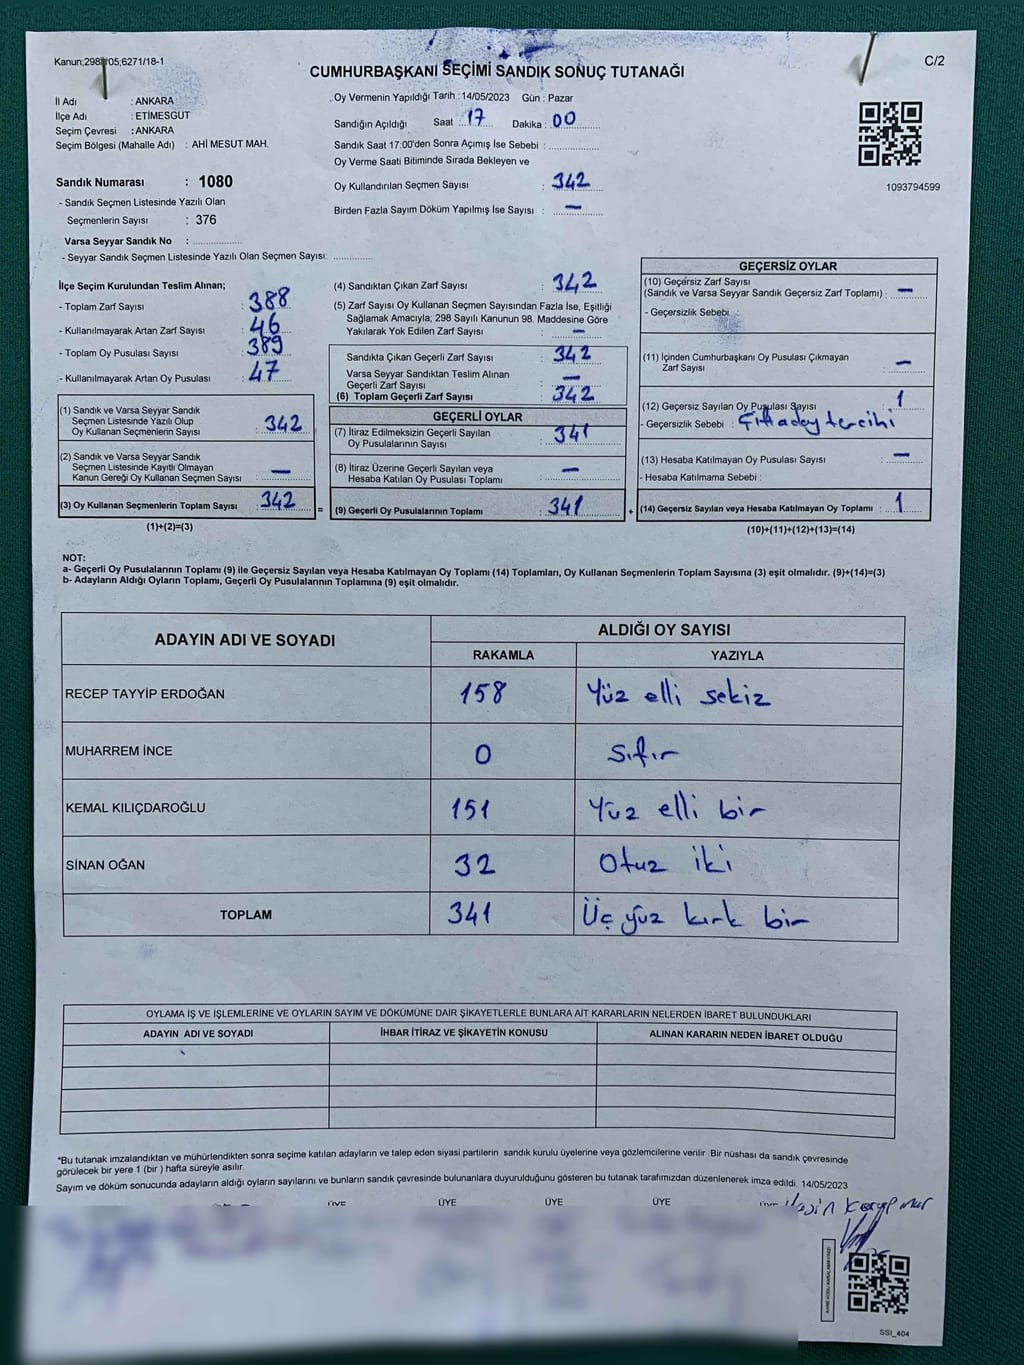 Kanun;298/105,6271/18-1
C/2
CUMHURBAŞKANI SEÇİMİ SANDIK SONUÇ TUTANAĞI
İl Adı : ANKARA
İlçe Adı : ETİMESGUT
Seçim Çevresi : ANKARA
Seçim Bölgesi (Mahalle Adı) : AHİ MESUT MAH.
Sandık Numarası : 1080
- Sandık Seçmen Listesinde Yazılı Olan
Seçmenlerin Sayısı : 376
Varsa Seyyar Sandık No :
- Seyyar Sandık Seçmen Listesinde Yazılı Olan Seçmen Sayısı:
Oy Vermenin Yapıldığı Tarih : 14/05/2023 Gün : Pazar
Sandığın Açıldığı Saat : 17 Dakika : 00
Sandık Saat 17:00'den Sonra Açımış İse Sebebi :
Oy Verme Saati Bitiminde Sırada Bekleyen ve
Oy Kullandırılan Seçmen Sayısı : 342
Birden Fazla Sayım Döküm Yapılmış İse Sayısı : —
1093794599
İlçe Seçim Kurulundan Teslim Alınan;
- Toplam Zarf Sayısı : 388
- Kullanılmayarak Artan Zarf Sayısı : 46
- Toplam Oy Pusulası Sayısı : 389
- Kullanılmayarak Artan Oy Pusulası : 47
(1) Sandık ve Varsa Seyyar Sandık
Seçmen Listesinde Yazılı Olup
Oy Kullanan Seçmenlerin Sayısı : 342
(2) Sandık ve Varsa Seyyar Sandık
Seçmen Listesinde Kayıtlı Olmayan
Kanun Gereği Oy Kullanan Seçmen Sayısı : —
(3) Oy Kullanan Seçmenlerin Toplam Sayısı : 342
(1)+(2)=(3)
(4) Sandıktan Çıkan Zarf Sayısı : 342
(5) Zarf Sayısı Oy Kullanan Seçmen Sayısından Fazla İse, Eşitliği
Sağlamak Amacıyla; 298 Sayılı Kanunun 98. Maddesine Göre
Yakılarak Yok Edilen Zarf Sayısı : —
Sandıkta Çıkan Geçerli Zarf Sayısı : 342
Varsa Seyyar Sandıktan Teslim Alınan
Geçerli Zarf Sayısı : —
(6) Toplam Geçerli Zarf Sayısı : 342
GEÇERLİ OYLAR
(7) İtiraz Edilmeksizin Geçerli Sayılan
Oy Pusulalarının Sayısı : 341
(8) İtiraz Üzerine Geçerli Sayılan veya
Hesaba Katılan Oy Pusulası Toplamı : —
= (9) Geçerli Oy Pusulalarının Toplamı : 341
GEÇERSİZ OYLAR
(10) Geçersiz Zarf Sayısı
(Sandık ve Varsa Seyyar Sandık Geçersiz Zarf Toplamı) : —
- Geçersizlik Sebebi
(11) İçinden Cumhurbaşkanı Oy Pusulası Çıkmayan
Zarf Sayısı : —
(12) Geçersiz Sayılan Oy Pusulası Sayısı : 1
- Geçersizlik Sebebi : Çift aday tercihi
(13) Hesaba Katılmayan Oy Pusulası Sayısı : —
- Hesaba Katılmama Sebebi :
+ (14) Geçersiz Sayılan veya Hesaba Katılmayan Oy Toplamı : 1
(10)+(11)+(12)+(13)=(14)
NOT:
a- Geçerli Oy Pusulalarının Toplamı (9) ile Geçersiz Sayılan veya Hesaba Katılmayan Oy Toplamı (14) Toplamları, Oy Kullanan Seçmenlerin Toplam Sayısına (3) eşit olmalıdır. (9)+(14)=(3)
b- Adayların Aldığı Oyların Toplamı, Geçerli Oy Pusulalarının Toplamına (9) eşit olmalıdır.
ADAYIN ADI VE SOYADI ALDIĞI OY SAYISI
RAKAMLA YAZIYLA
RECEP TAYYİP ERDOĞAN 158 Yüz elli sekiz
MUHARREM İNCE 0 Sıfır
KEMAL KILIÇDAROĞLU 151 Yüz elli bir
SİNAN OĞAN 32 Otuz iki
TOPLAM 341 Üç yüz kırk bir
OYLAMA İŞ VE İŞLEMLERİNE VE OYLARIN SAYIM VE DÖKÜMÜNE DAİR ŞİKAYETLERLE BUNLARA AİT KARARLARIN NELERDEN İBARET BULUNDUKLARI
ADAYIN ADI VE SOYADI İHBAR İTİRAZ VE ŞİKAYETİN KONUSU ALINAN KARARIN NEDEN İBARET OLDUĞU
*Bu tutanak imzalandıktan ve mühürlendikten sonra seçime katılan adayların ve talep eden siyasi partilerin sandık kurulu üyelerine veya gözlemcilerine verilir. Bir nüshası da sandık çevresinde
görülecek bir yere 1 (bir ) hafta süreyle asılır.
Sayım ve döküm sonucunda adayların aldığı oyların sayılarını ve bunların sandık çevresinde bulunanlara duyurulduğunu gösteren bu tutanak tarafımızdan düzenlenerek imza edildi. 14/05/2023
ÜYE ÜYE ÜYE ÜYE ÜYE
SSİ_404